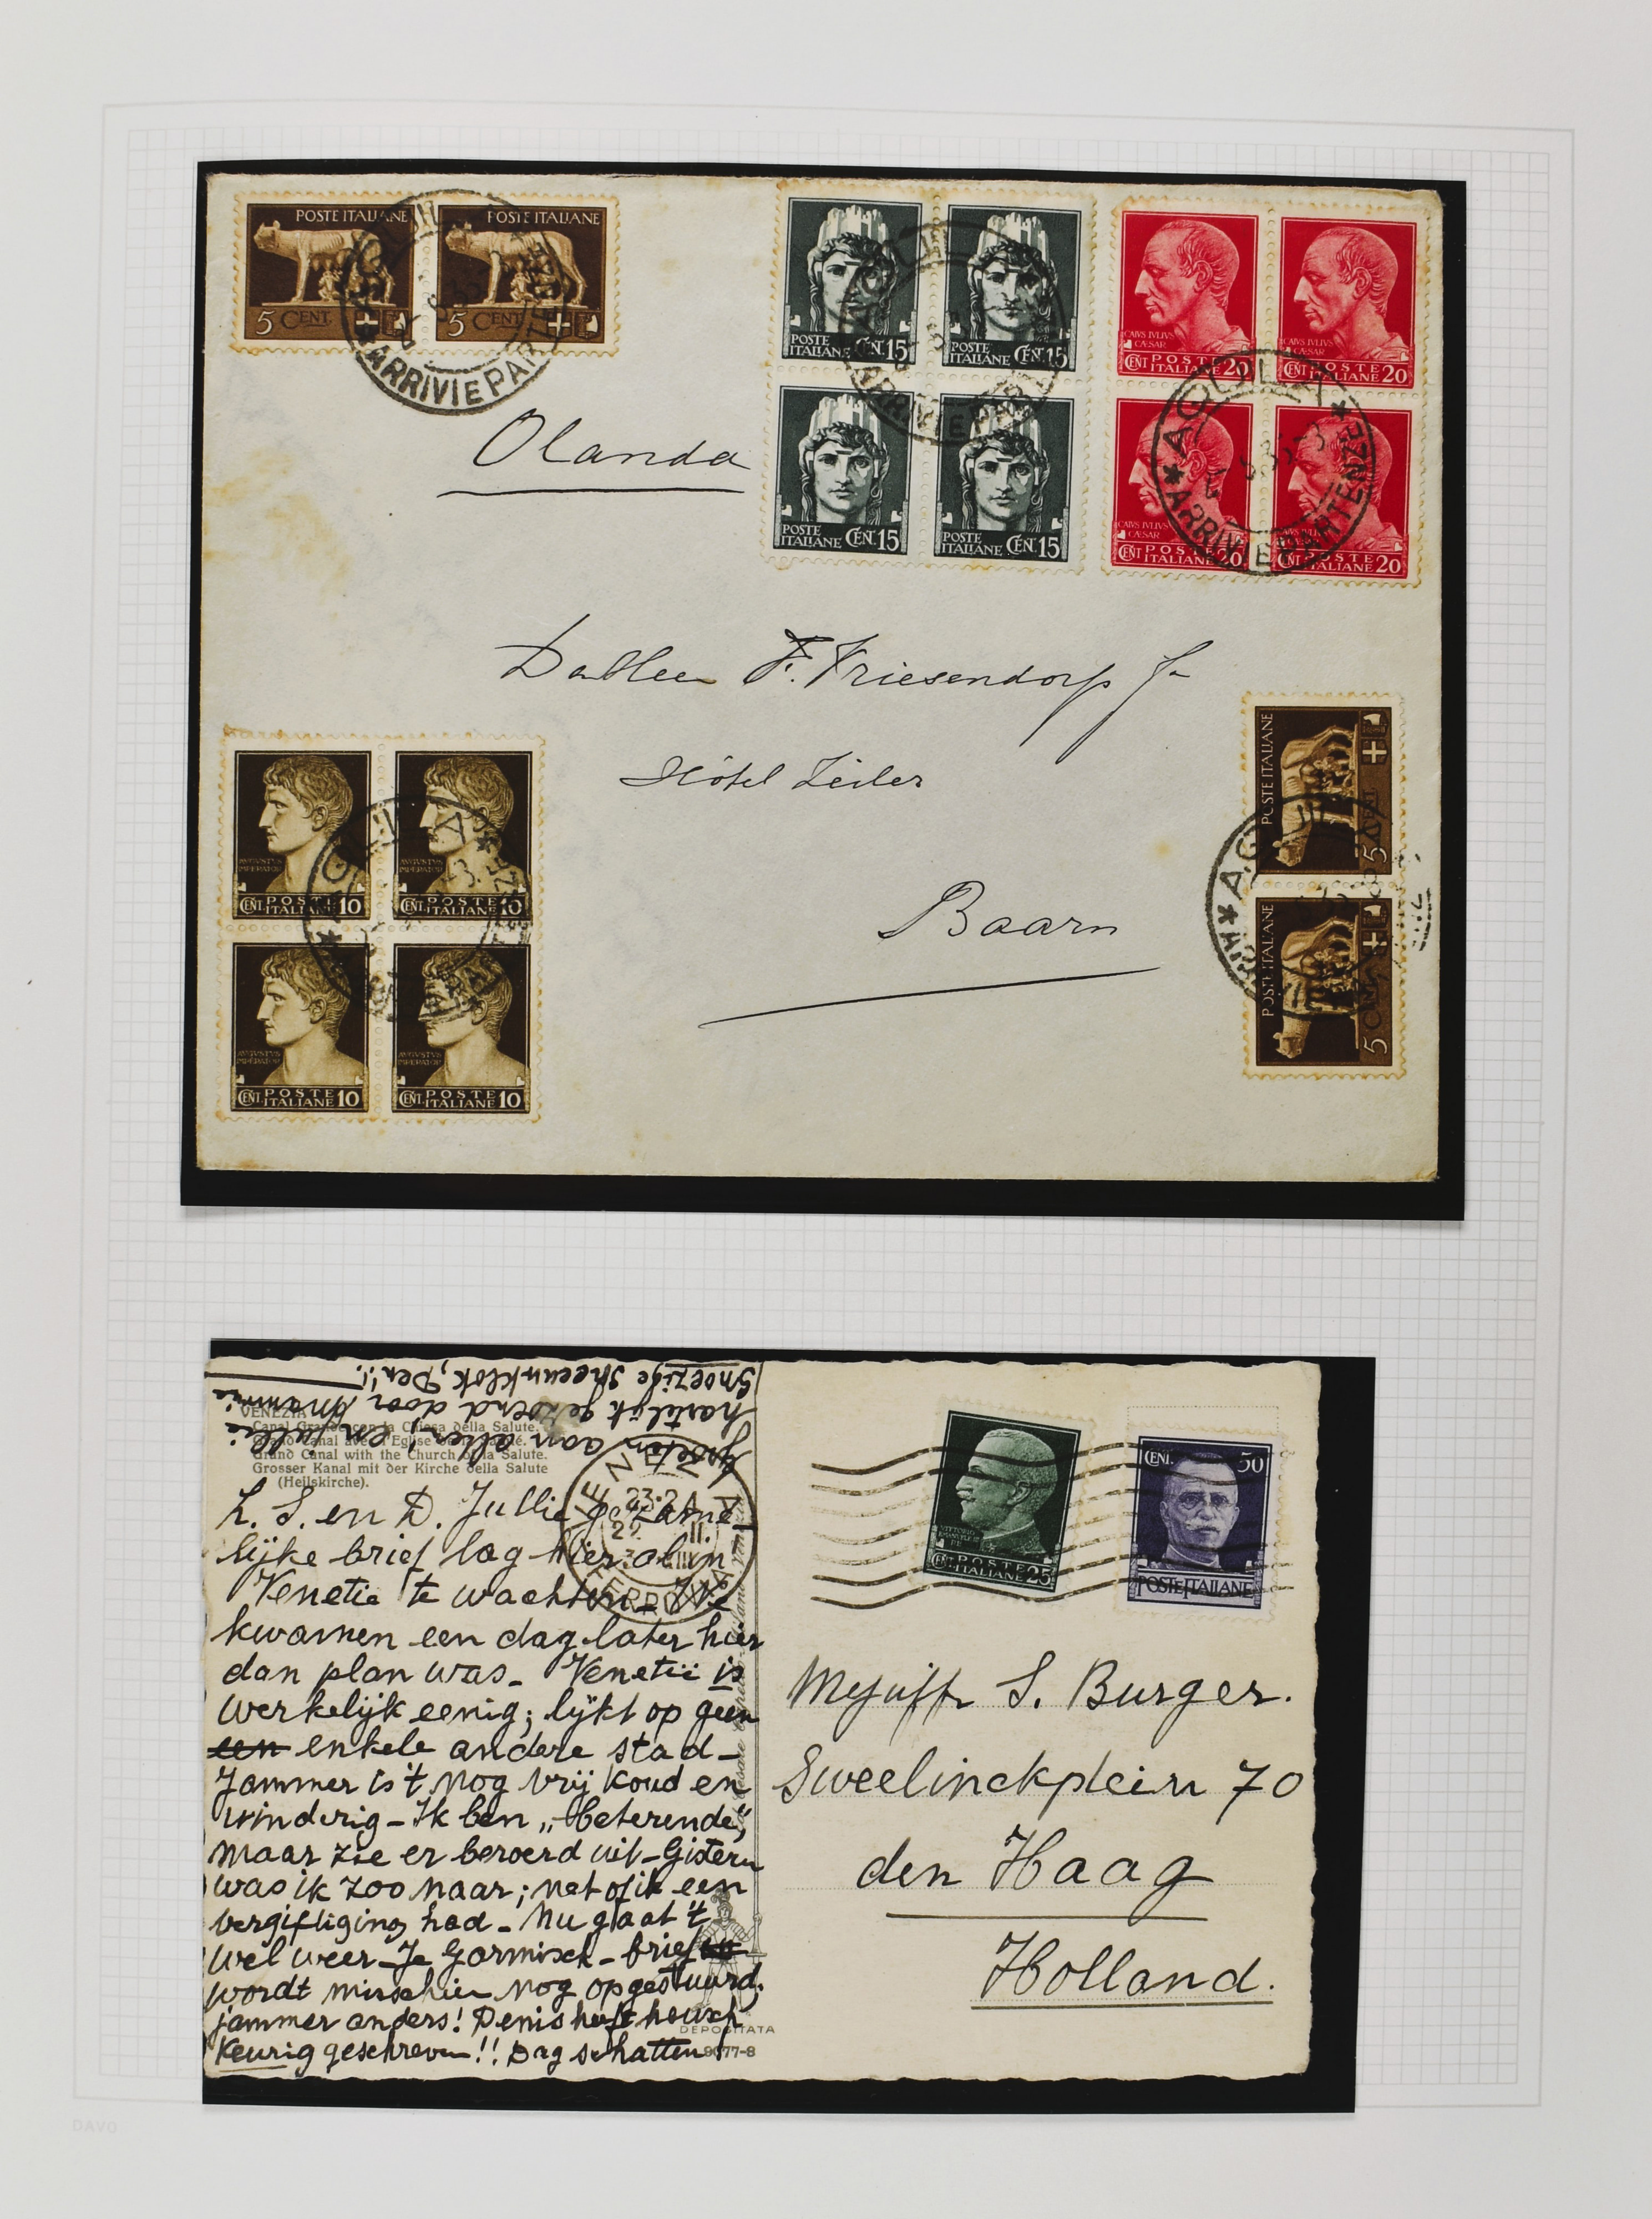 POSTE ITALIANE
5 CENT.
POSTE ITALIANE
5 CENT.
ARRIVI E PAR
POSTE ITALIANE CEN. 15
POSTE ITALIANE CEN. 15
POSTE ITALIANE CEN. 15
POSTE ITALIANE CEN. 15
CAIVS IVLIVS CÆSAR
CENT POSTE ITALIANE 20
CAIVS IVLIVS CÆSAR
CENT POSTE ITALIANE 20
CAIVS IVLIVS CÆSAR
CENT POSTE ITALIANE 20
CENT POSTE ITALIANE 20
*AQUILA*
ARRIVI E PARTENZE
Olanda
F. Friesendorp Jr
Hôtel Zeiler
Baarn
AVGVSTVS IMPERATOR
CENT. POSTE ITALIANE 10
AVGVSTVS IMPERATOR
CENT. POSTE ITALIANE 10
AVGVSTVS IMPERATOR
CENT. POSTE ITALIANE 10
AVGVSTVS IMPERATOR
CENT. POSTE ITALIANE 10
POSTE ITALIANE
5 CENT.
POSTE ITALIANE
5 CENT.
Groeten aan allen! en jullie
hartelijk gezoend door Mammie
Snoezige Den!!
VENEZIA
Canal Grande con la Chiesa della Salute.
Grand Canal avec l'Eglise
Grand Canal with the Church of la Salute.
Grosser Kanal mit der Kirche della Salute
(Heilskirche).
L. S. en D. Jullie gezame-
lijke brief lag hier al in
Venetie te wachten - We
kwamen een dag later hier
dan plan was - Venetië is
werkelijk eenig; lijkt op geen
een enkele andere stad -
Jammer is 't nog vrij koud en
winderig - Ik ben „beterende",
maar zie er beroerd uit - Gisteren
was ik zoo naar; net of ik een
vergiftiging had - Nu gaat 't
wel weer - Je Garmisch - brief
wordt misschien nog opgestuurd;
jammer anders! Denis heeft heusch
keurig geschreven!! Dag schatten!
DEPOSITATA
9077-8
VITTORIO EMANUELE III
CENT. POSTE ITALIANE 25
CENT. 50
POSTE ITALIANE
Mejuffr S. Burger.
Sweelinckplein 70
den Haag
Holland.
DAVO